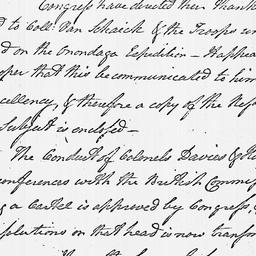 Congress have directed their Thank
d to Coll: Van Schaick & the Troops un
d on the Onondaga Expedition — It appea
per that this be communicated to him
cellency, & therefore a copy of the Res
Subject is enclosed —
The Conduct of Colonels Davies & Ha
onferences with the British Commis
g a Cartel is approved by Congress,
solutions on that head is now transm